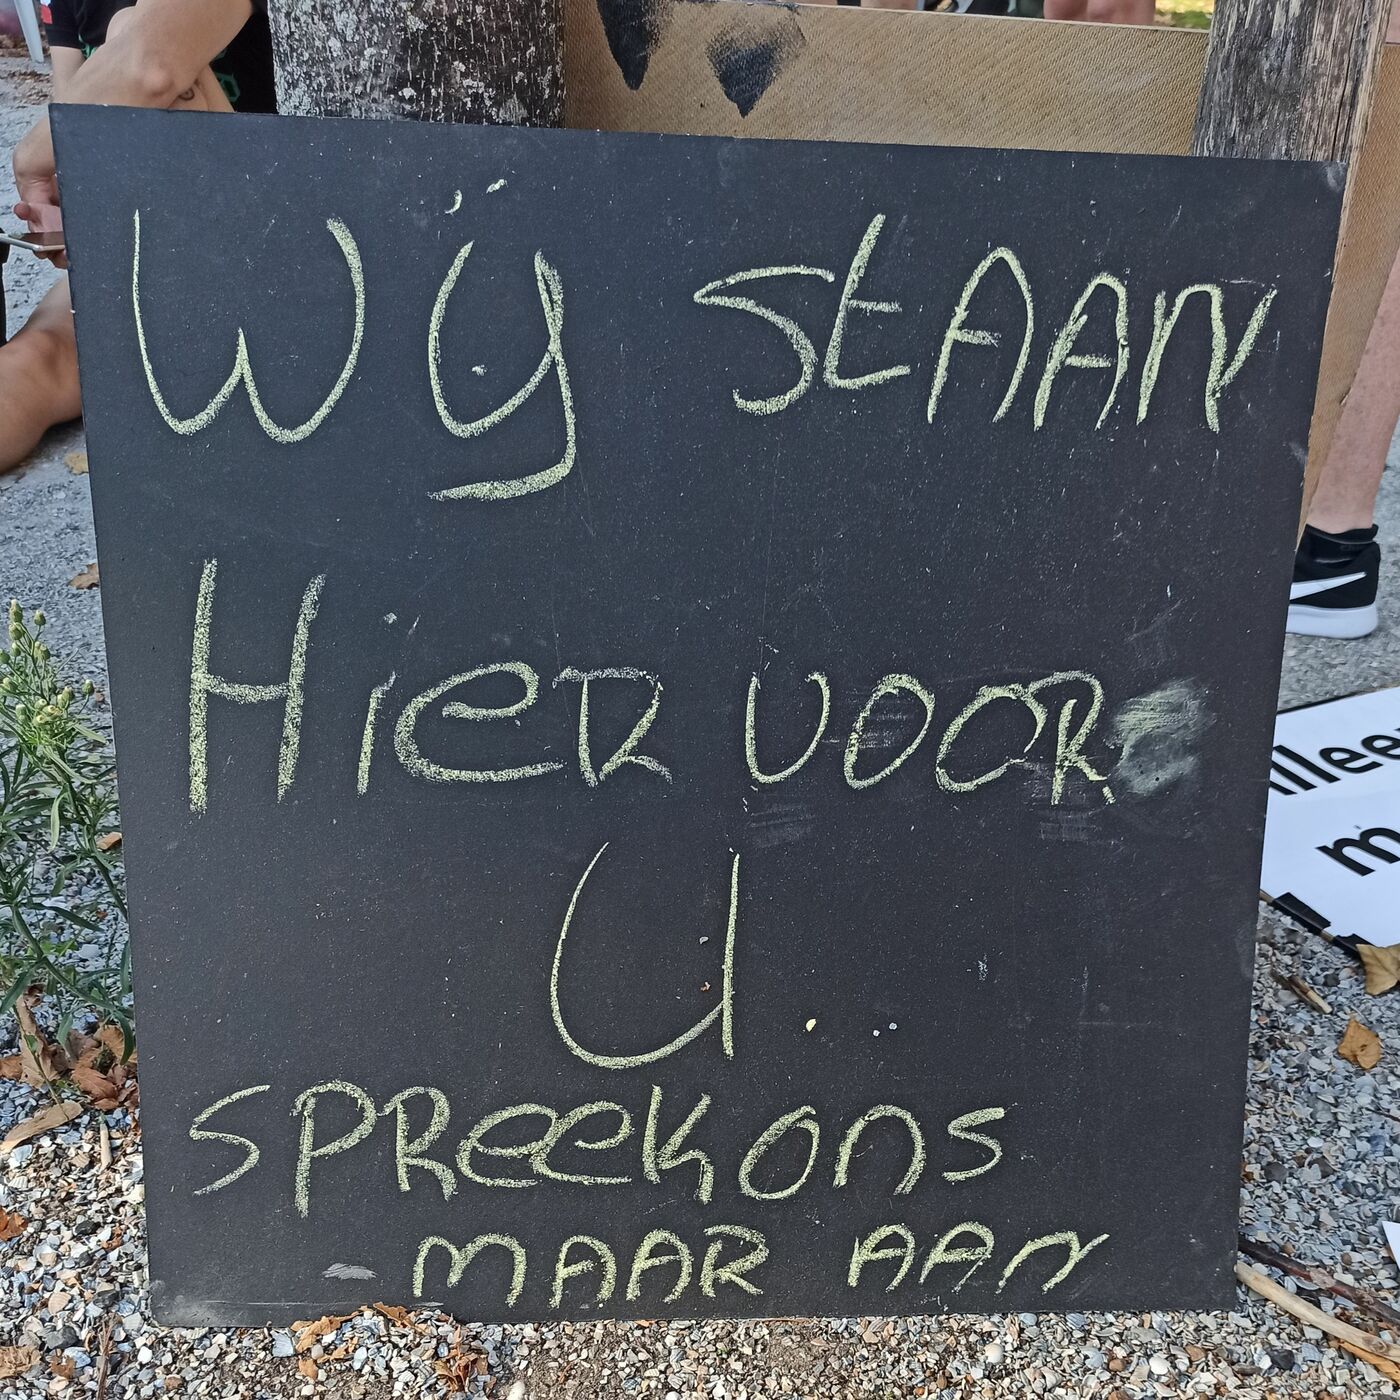 Wij stAAN
HieR VOOR
U..
SPReek ons
MAAR AAN
alleen
m